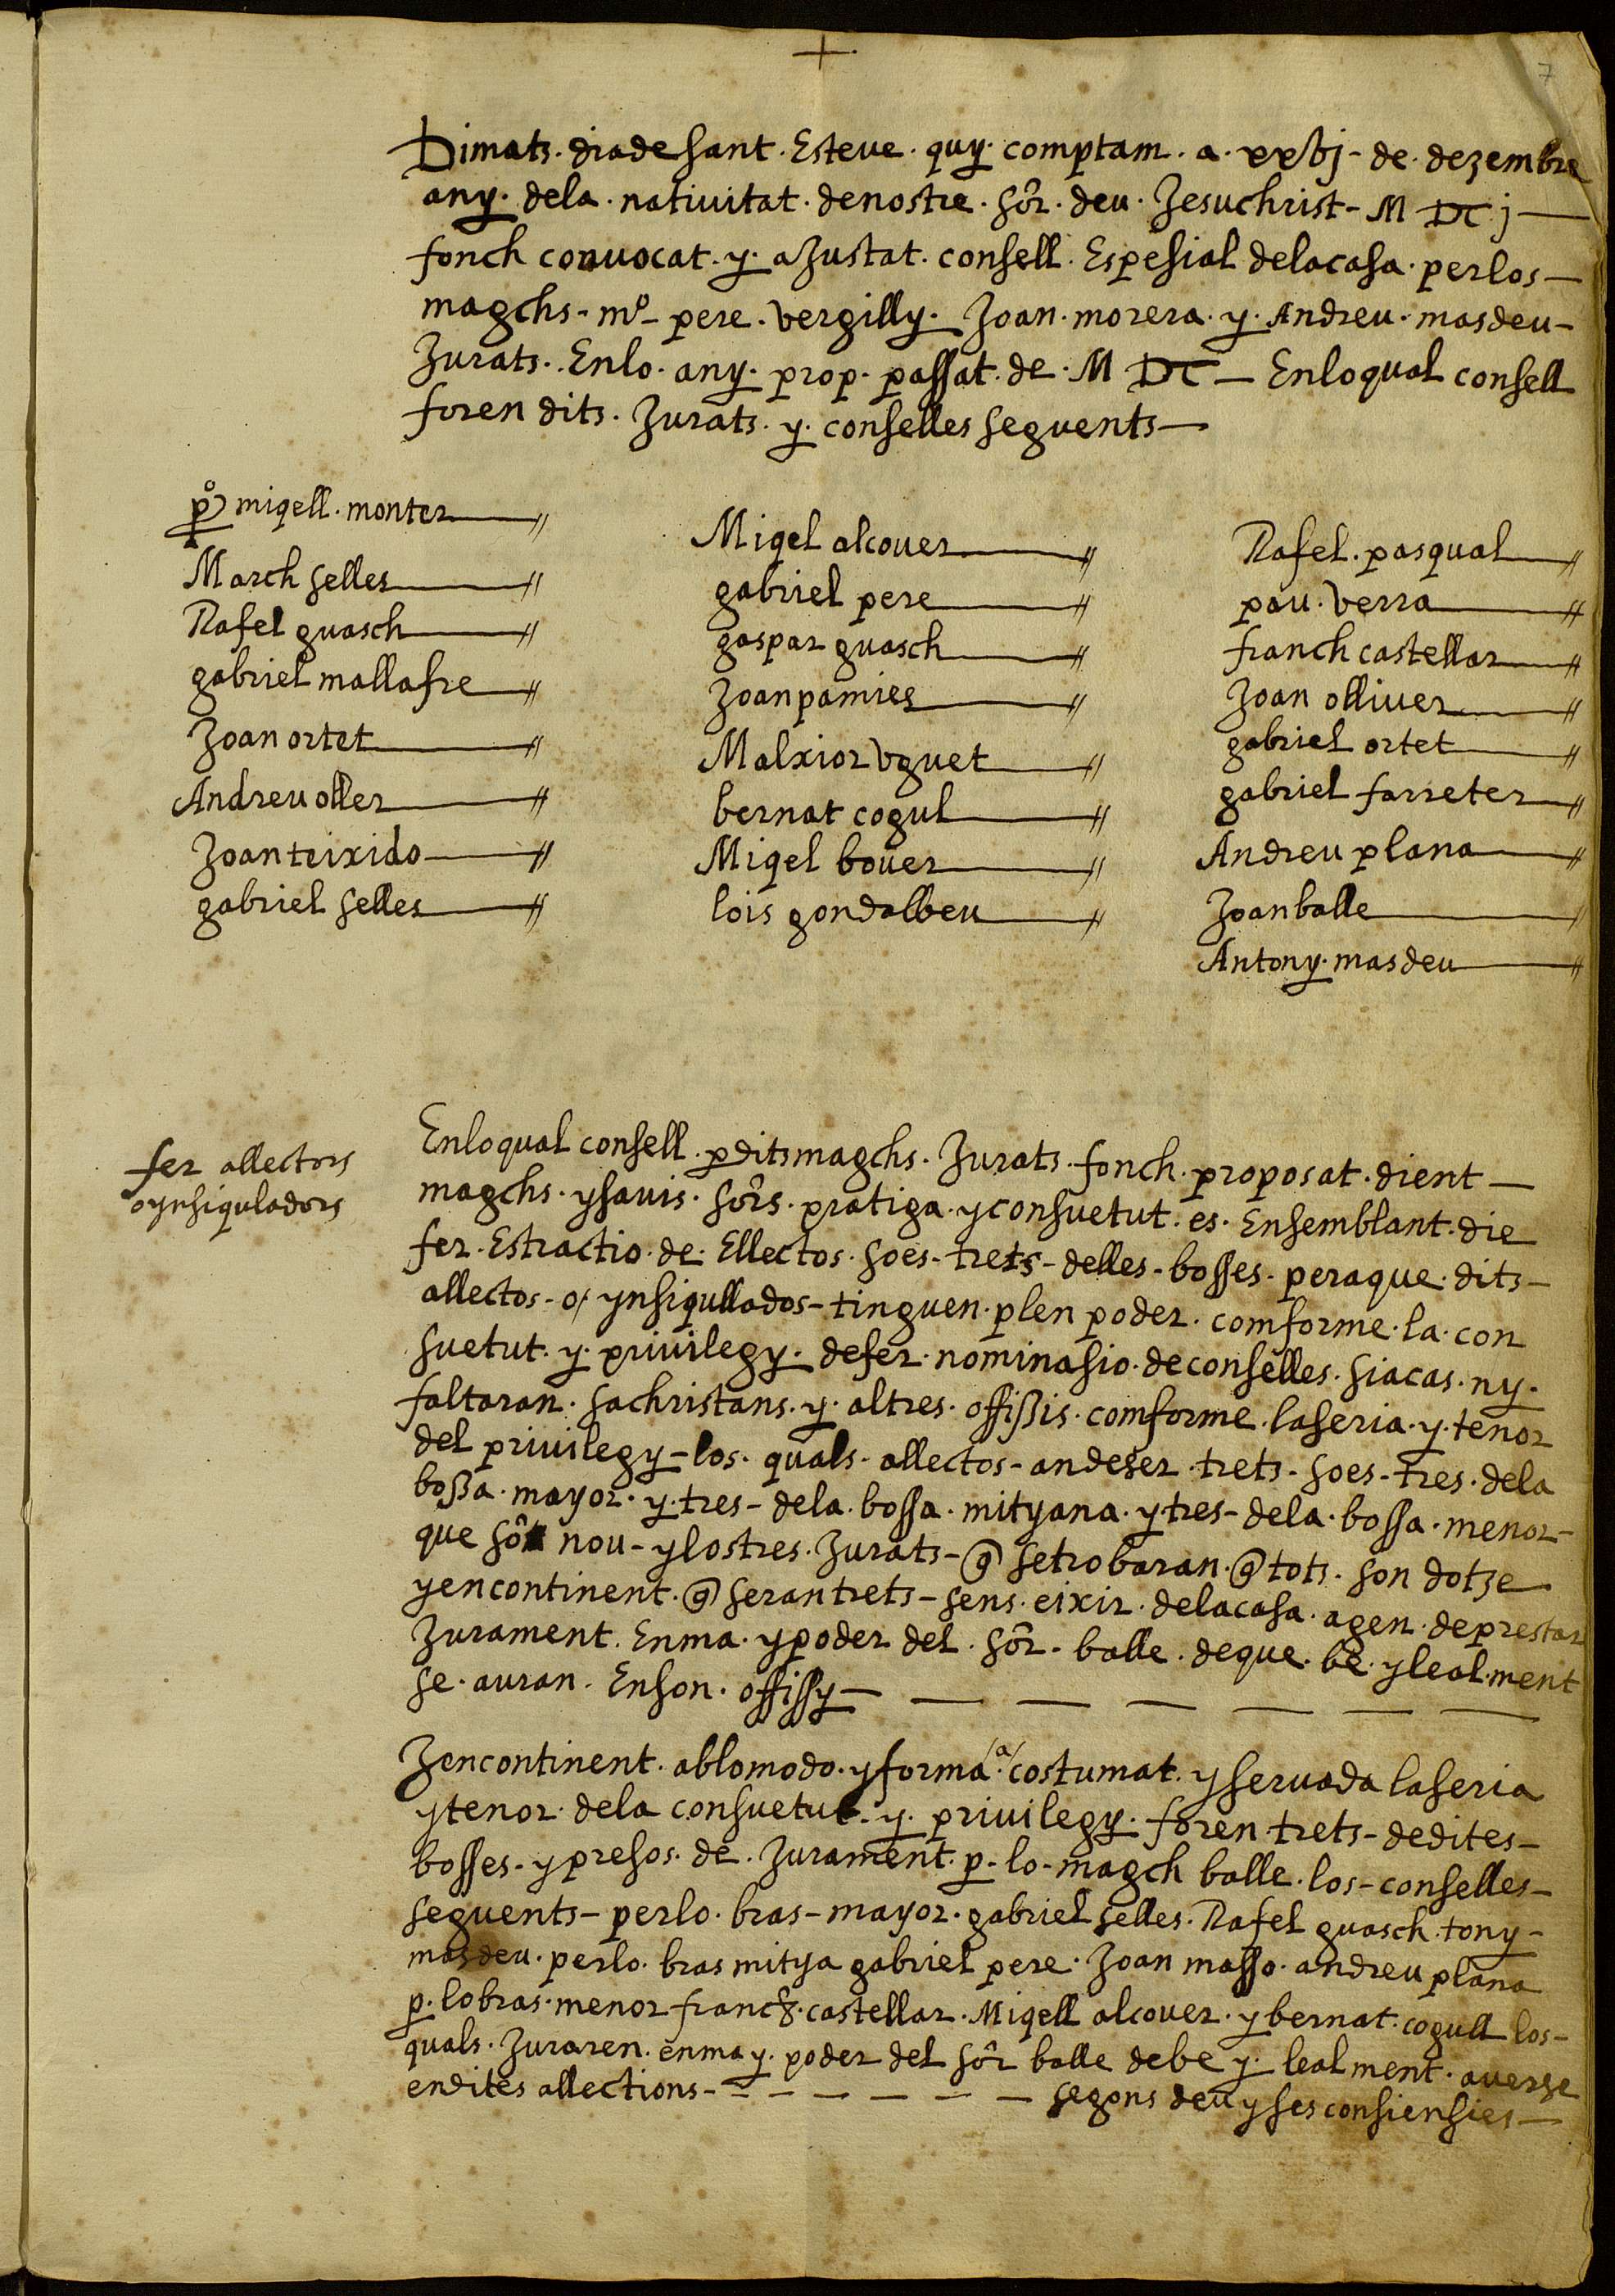 +
7
Dimats. dia de sant. Esteve. quy. comptam. a. xxvbj - de. dezembre
any. dela. nativitat. denostre. sor. deu. Jesuchrist - M DC j —
fonch convocat. y. aJustat. consell. Espesial delacasa. perlos —
magchs - mº - pere. vergilly. Joan. morera. y. Andreu. masdeu -
Jurats. Enlo. any. prop. passat. de. M DC — Enloqual consell
foren dits. Jurats. y. conselles seguents —
pº miqell. monter
March selles
Rafel guasch
gabriel mallafre
Joan ortet
Andreu oller
Joan teixido
gabriel selles
Miqel alcover
gabriel pere
gaspar guasch
Joan pamies
Malxior vguet
bernat cogul
Miqel bover
lois gondalbeu
Rafel. pasqual
pau. verra
franch castellar
Joan olliver
gabriel ortet
gabriel farreter
Andreu plana
Joan balle
Antony. masdeu
fer allectors
o ynsiquladors
Enloqual consell. p dits magchs. Jurats. fonch. proposat. dient —
magchs. y savis. sors. pratiga. y consuetut. es. Ensemblant. die
fer. Estractio. de. Ellectos. soes - trets - delles - bosses. peraque. dits -
allectos - o, ynsiqullados - tinguen. plen poder. comforme. la. con
suetut. y. privilegy. defer. nominasio. deconselles. siacas. ny.
faltaran. sachristans. y. altres. offissis. comforme. laseria. y. tenor
del privilegy - los. quals. allectos - andeser. trets. soes - tres. dela
bossa. mayor. y. tres - dela. bossa. mityana. y tres - dela. bossa. menor -
que sô nou - y lostres. Jurats - q setrobaran. q tots. son dotze
yencontinent. q seran trets - sens. eixir. delacasa. agen. deprestar
Jurament. Enma. y poder del. sor. balle. deque. be. y leal. ment
se. auran. Enson. offissy —
Jencontinent. ablomodo. y forma. a costumat. y servada laseria
y tenor. dela consuetut. y. privilegy. foren trets - dedites -
bosses - y presos. de. Jurament. p. lo - magch balle. los - conselles -
seguents - perlo. bras - mayor. gabriel selles. Rafel guasch. tony -
masdeu. perlo. bras mitya gabriel pere. Joan masso. andreu plana
p. lobras. menor franch. castellar. Miqell alcover. y bernat. cogull los -
quals. Juraren. enma y. poder del sor balle debe y. leal ment. averse
endites allections - - - - - - - segons deu y ses consiensies —